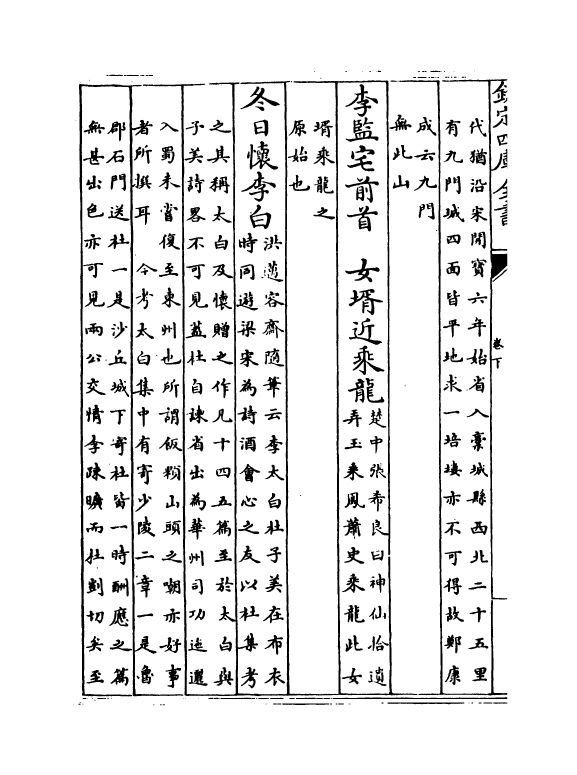 欽定四庫全書
卷下
代猶沿宋開寶六年始省入藁城縣西北二十五里
有九門城四面皆平地求一培塿亦不可得故鄭康
成云九門
無此山
李監宅前首　女壻近乘龍
楚中張希良曰神仙拾遺
弄玉乘鳳蕭史乘龍此女
壻乘龍之
原始也
冬日懷李白
洪邁容齋隨筆云李太白杜子美在布衣
時同遊梁宋為詩酒會心之友以杜集考
之其稱太白及懷贈之作凡十四五篇至於太白與
子美詩畧不可見蓋杜自諫省出為華州司功迤邐
入蜀未嘗復至東州也所謂飯顆山頭之嘲亦好事
者所撰耳　今考太白集中有寄少陵二章一是魯
郡石門送杜一是沙丘城下寄杜皆一時酬應之篇
無甚出色亦可見兩公交情李疎曠而杜剴切矣至